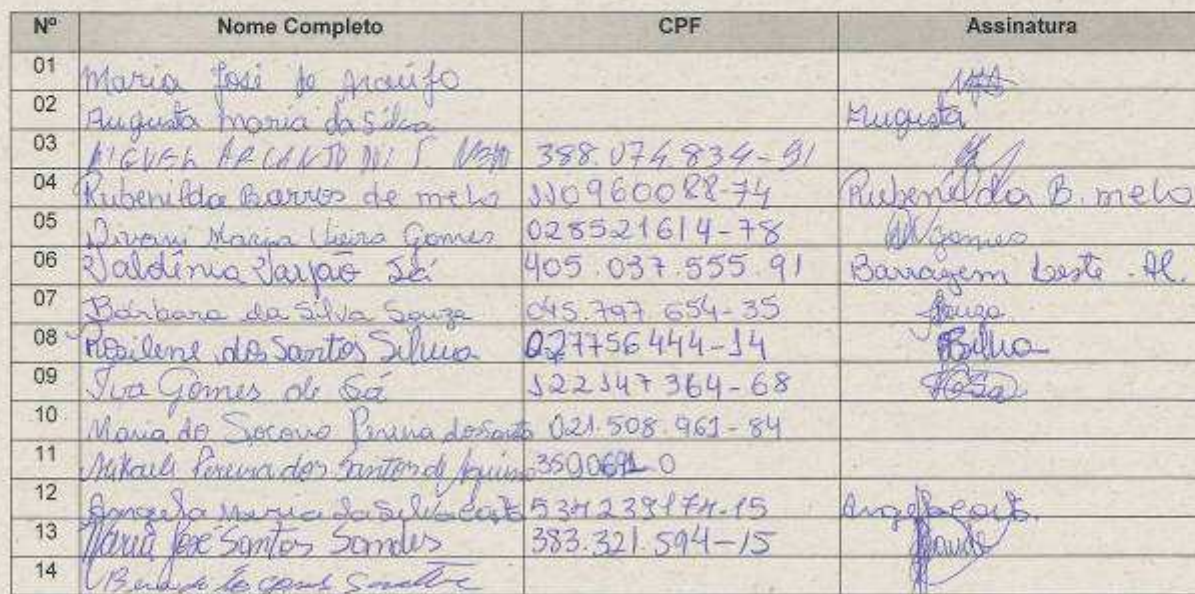 Nº Nome Completo CPF Assinatura
01 Maria José de Araújo
02 Augusta Maria da Silva Augusta
03 388.074.834-91
04 Rubenilda Barros de melo 110960088-74 Rubenilda B. melo
05 Divani Maria Vieira Gomes 028521614-78 Gomes
06 Valdênia Varjão Sá 405.037.555.91 Barragem Leste - Al.
07 Bárbara da Silva Souza 045.797.654-35 Souza
08 Rosilene dos Santos Silva 027756444-14
09 Iva Gomes de Sá 122147364-68
10 Maria do Socorro Pereira dos Santos 021.508.961-84
11 Mikaeli Pereira dos Santos de
12 Angela Maria da Silva Costa 534239174-15 Angela Costa
13 Maria José Santos Sandes 383.321.594-15
14